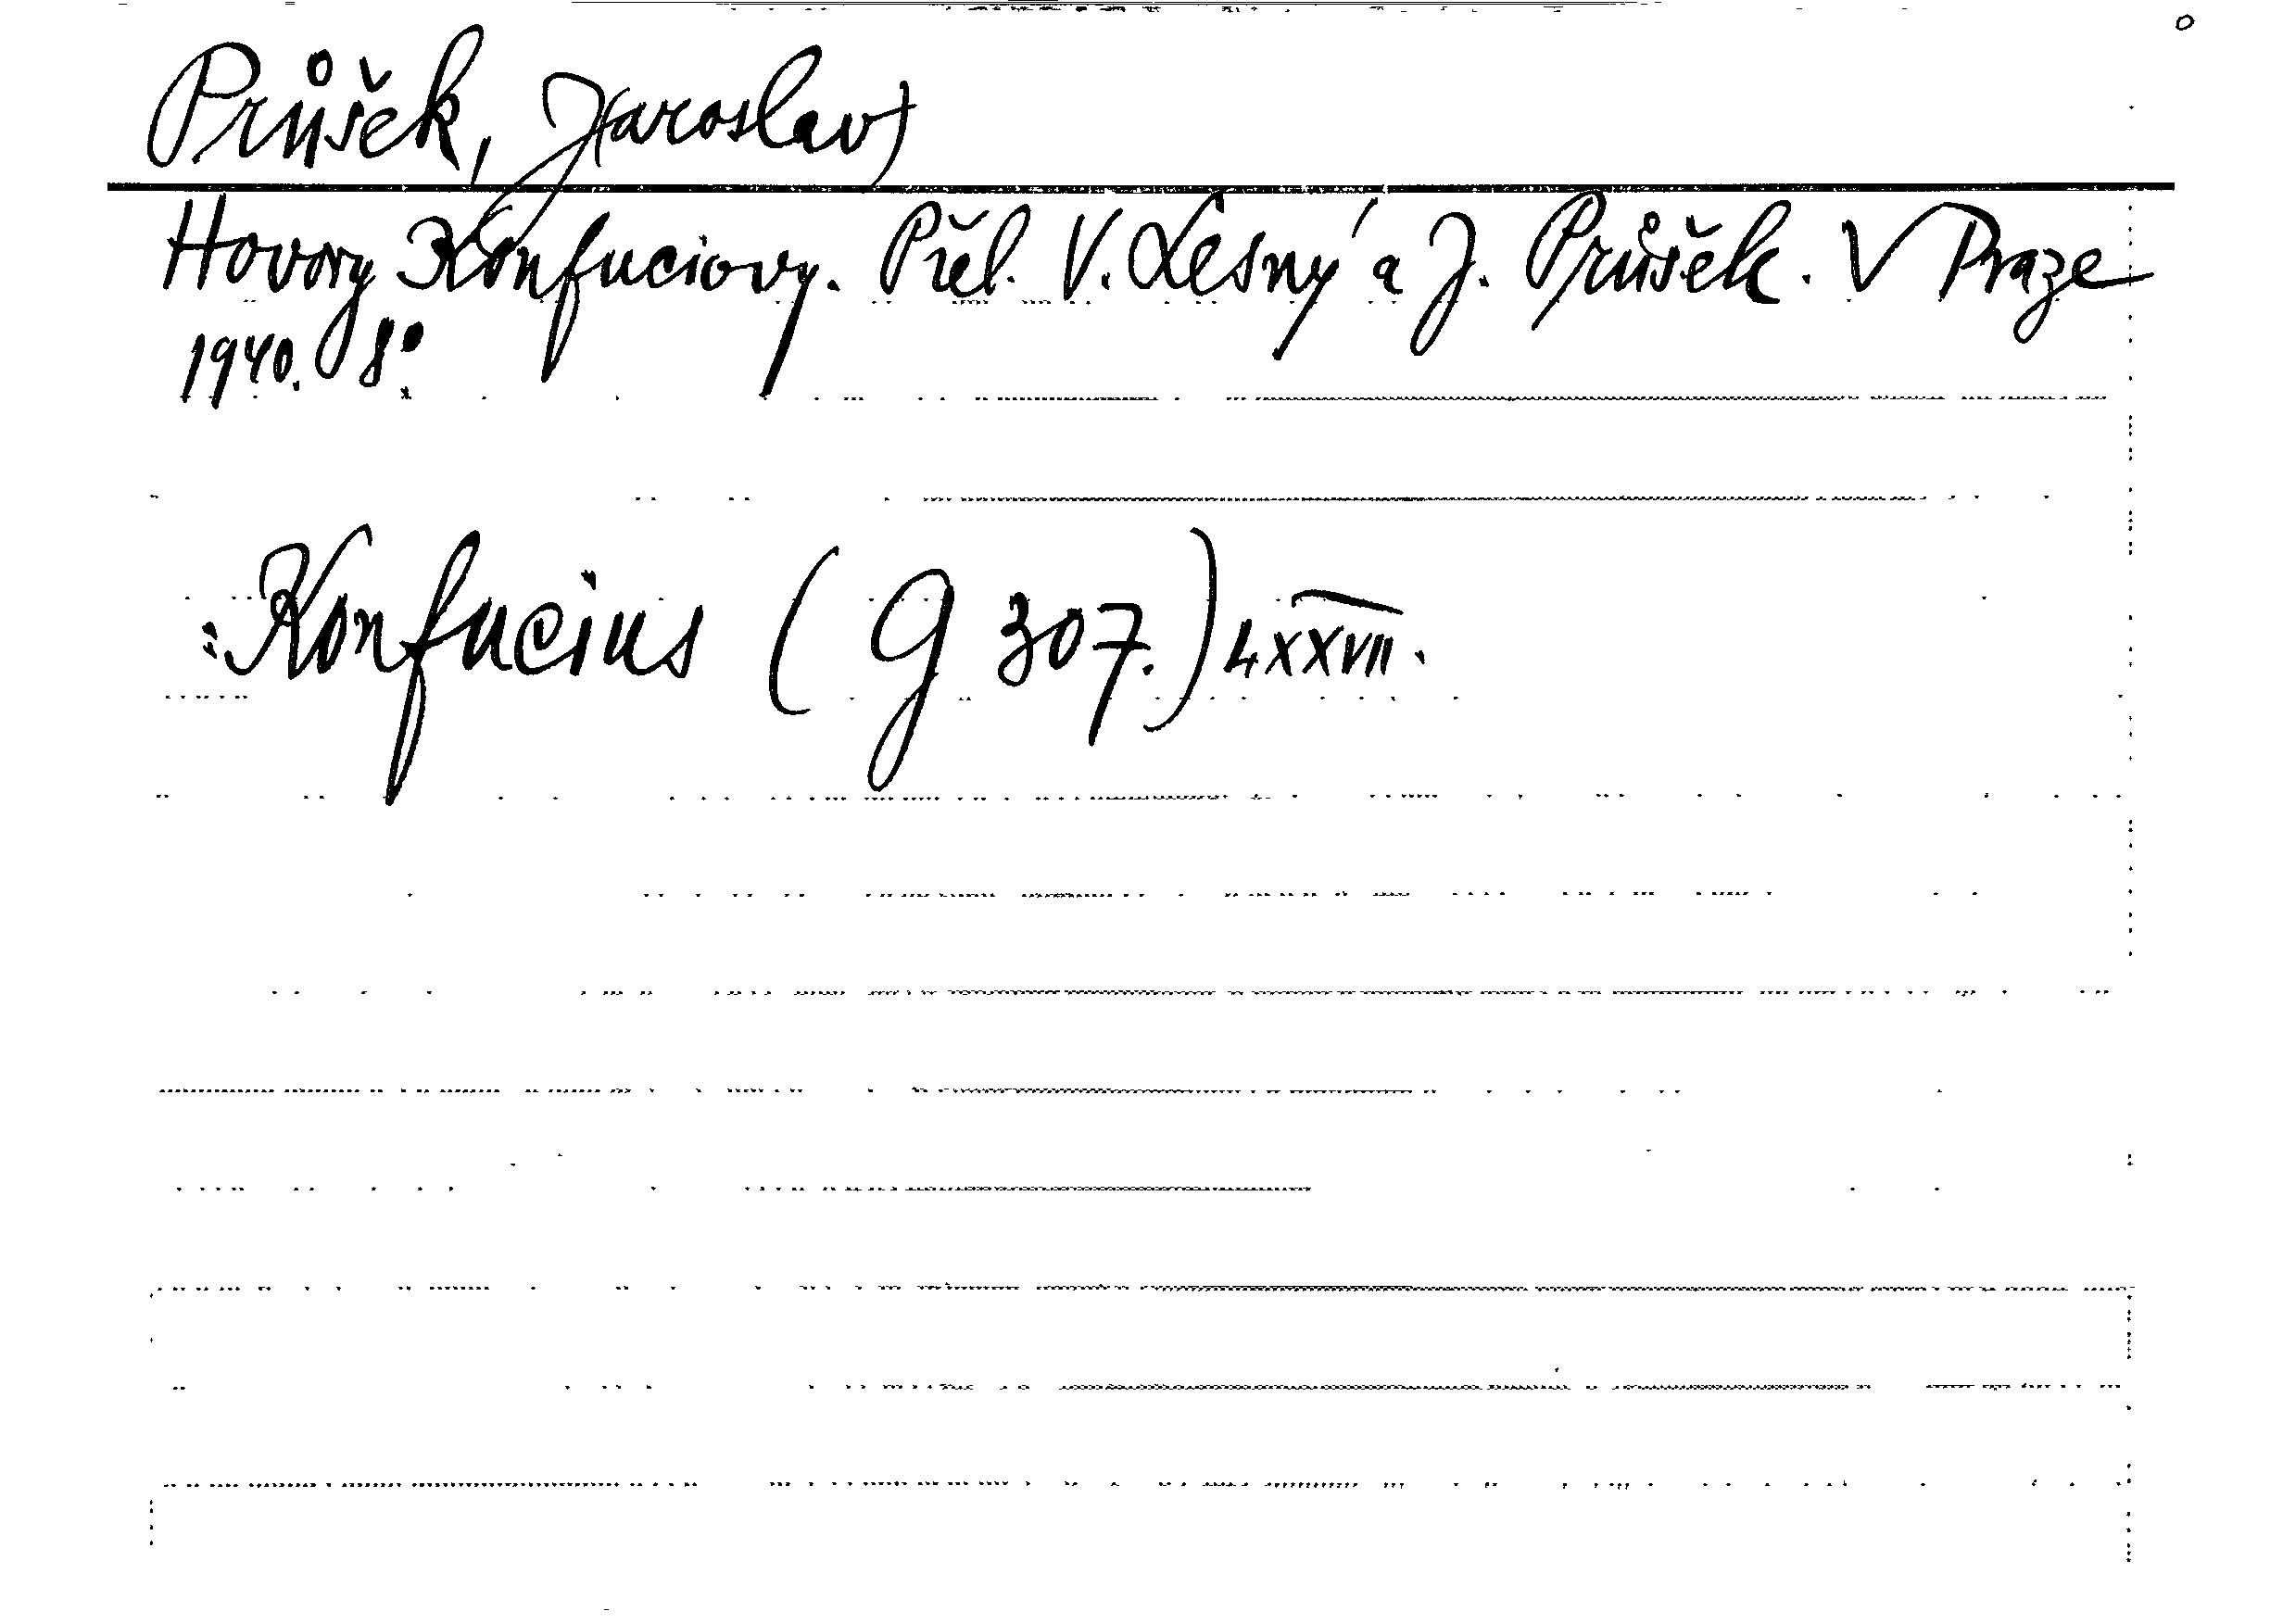 Průšek, J(aroslav)
Hovory Konfuciovy. Přel. V. Lesný a J. Průšek. V Praze
1940. 8°.
: Konfucius (G 307.) LXXVII.